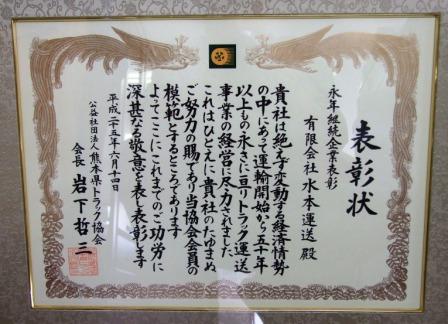 表彰状
永年継続企業表彰
有限会社 水本運送 殿
貴社は絶えず変動する経済情勢
の中にあって運輸開始から五十年
以上もの永きに亘りトラック運送
事業の経営に尽力されました
これはひとえに貴社のたゆまぬ
ご努力の賜であり当協会会員の
模範とするところであります
よってここにこれまでのご功労に
深甚なる敬意を表し表彰します
平成二十五年六月十四日
公益社団法人 熊本県トラック協会
会長 岩下哲三